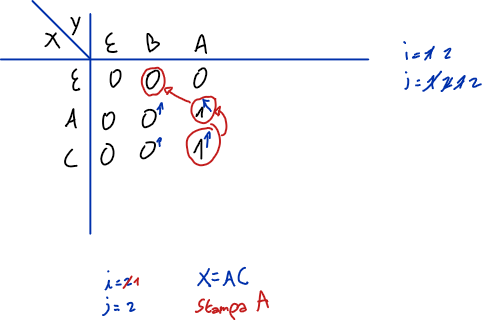 X Y ε B A
ε 0 0 0
A 0 0↑ 1↖
C 0 0↑ 1↑
i=1 2
j=1 2 1 2
i=2 1
j=2
X=AC
Stampa A